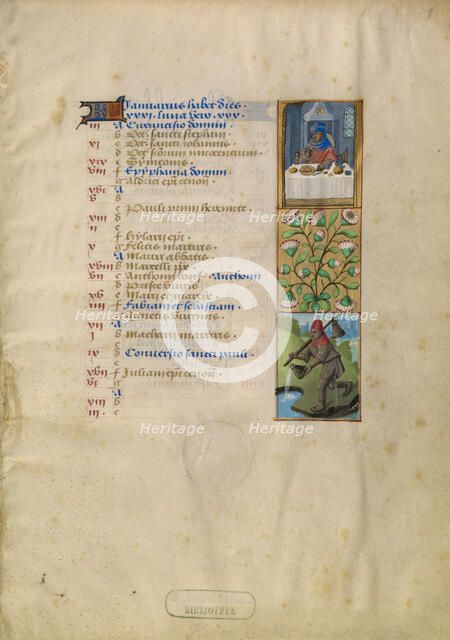 KL Januarius habet dies.
XXXI. luna vero. XXX.
iii A Circuncisio domini.
b Oct' sancti stephani.
c Oct' sancti iohannis.
d Oct' innocentum.
xix e Symeonis.
f Epyphania domini.
g Aldrici epi cenon.
xvi A
b
c Pauli primi heremite.
xiii d
ii
f Hylarii epi.
Felicis martiris.
A Mauri abbatis.
xviii b Marcelli pape.
vii c Anthonii conf. Anthonii
d Prisce virginis.
xv e Marii et marthe.
iiii f Fabiani et sebastiani.
g Agnetis virginis.
xii A
i b Macharii martiris.
c
ix d Conversio sancti pauli.
e
xvii f Juliani epi cenon.
vi g
A
b
iii c
BIBLIOTHEK
Heritage
Heritage
Heritage
Heritage
Heritage
Heritage
Heritage
Heritage